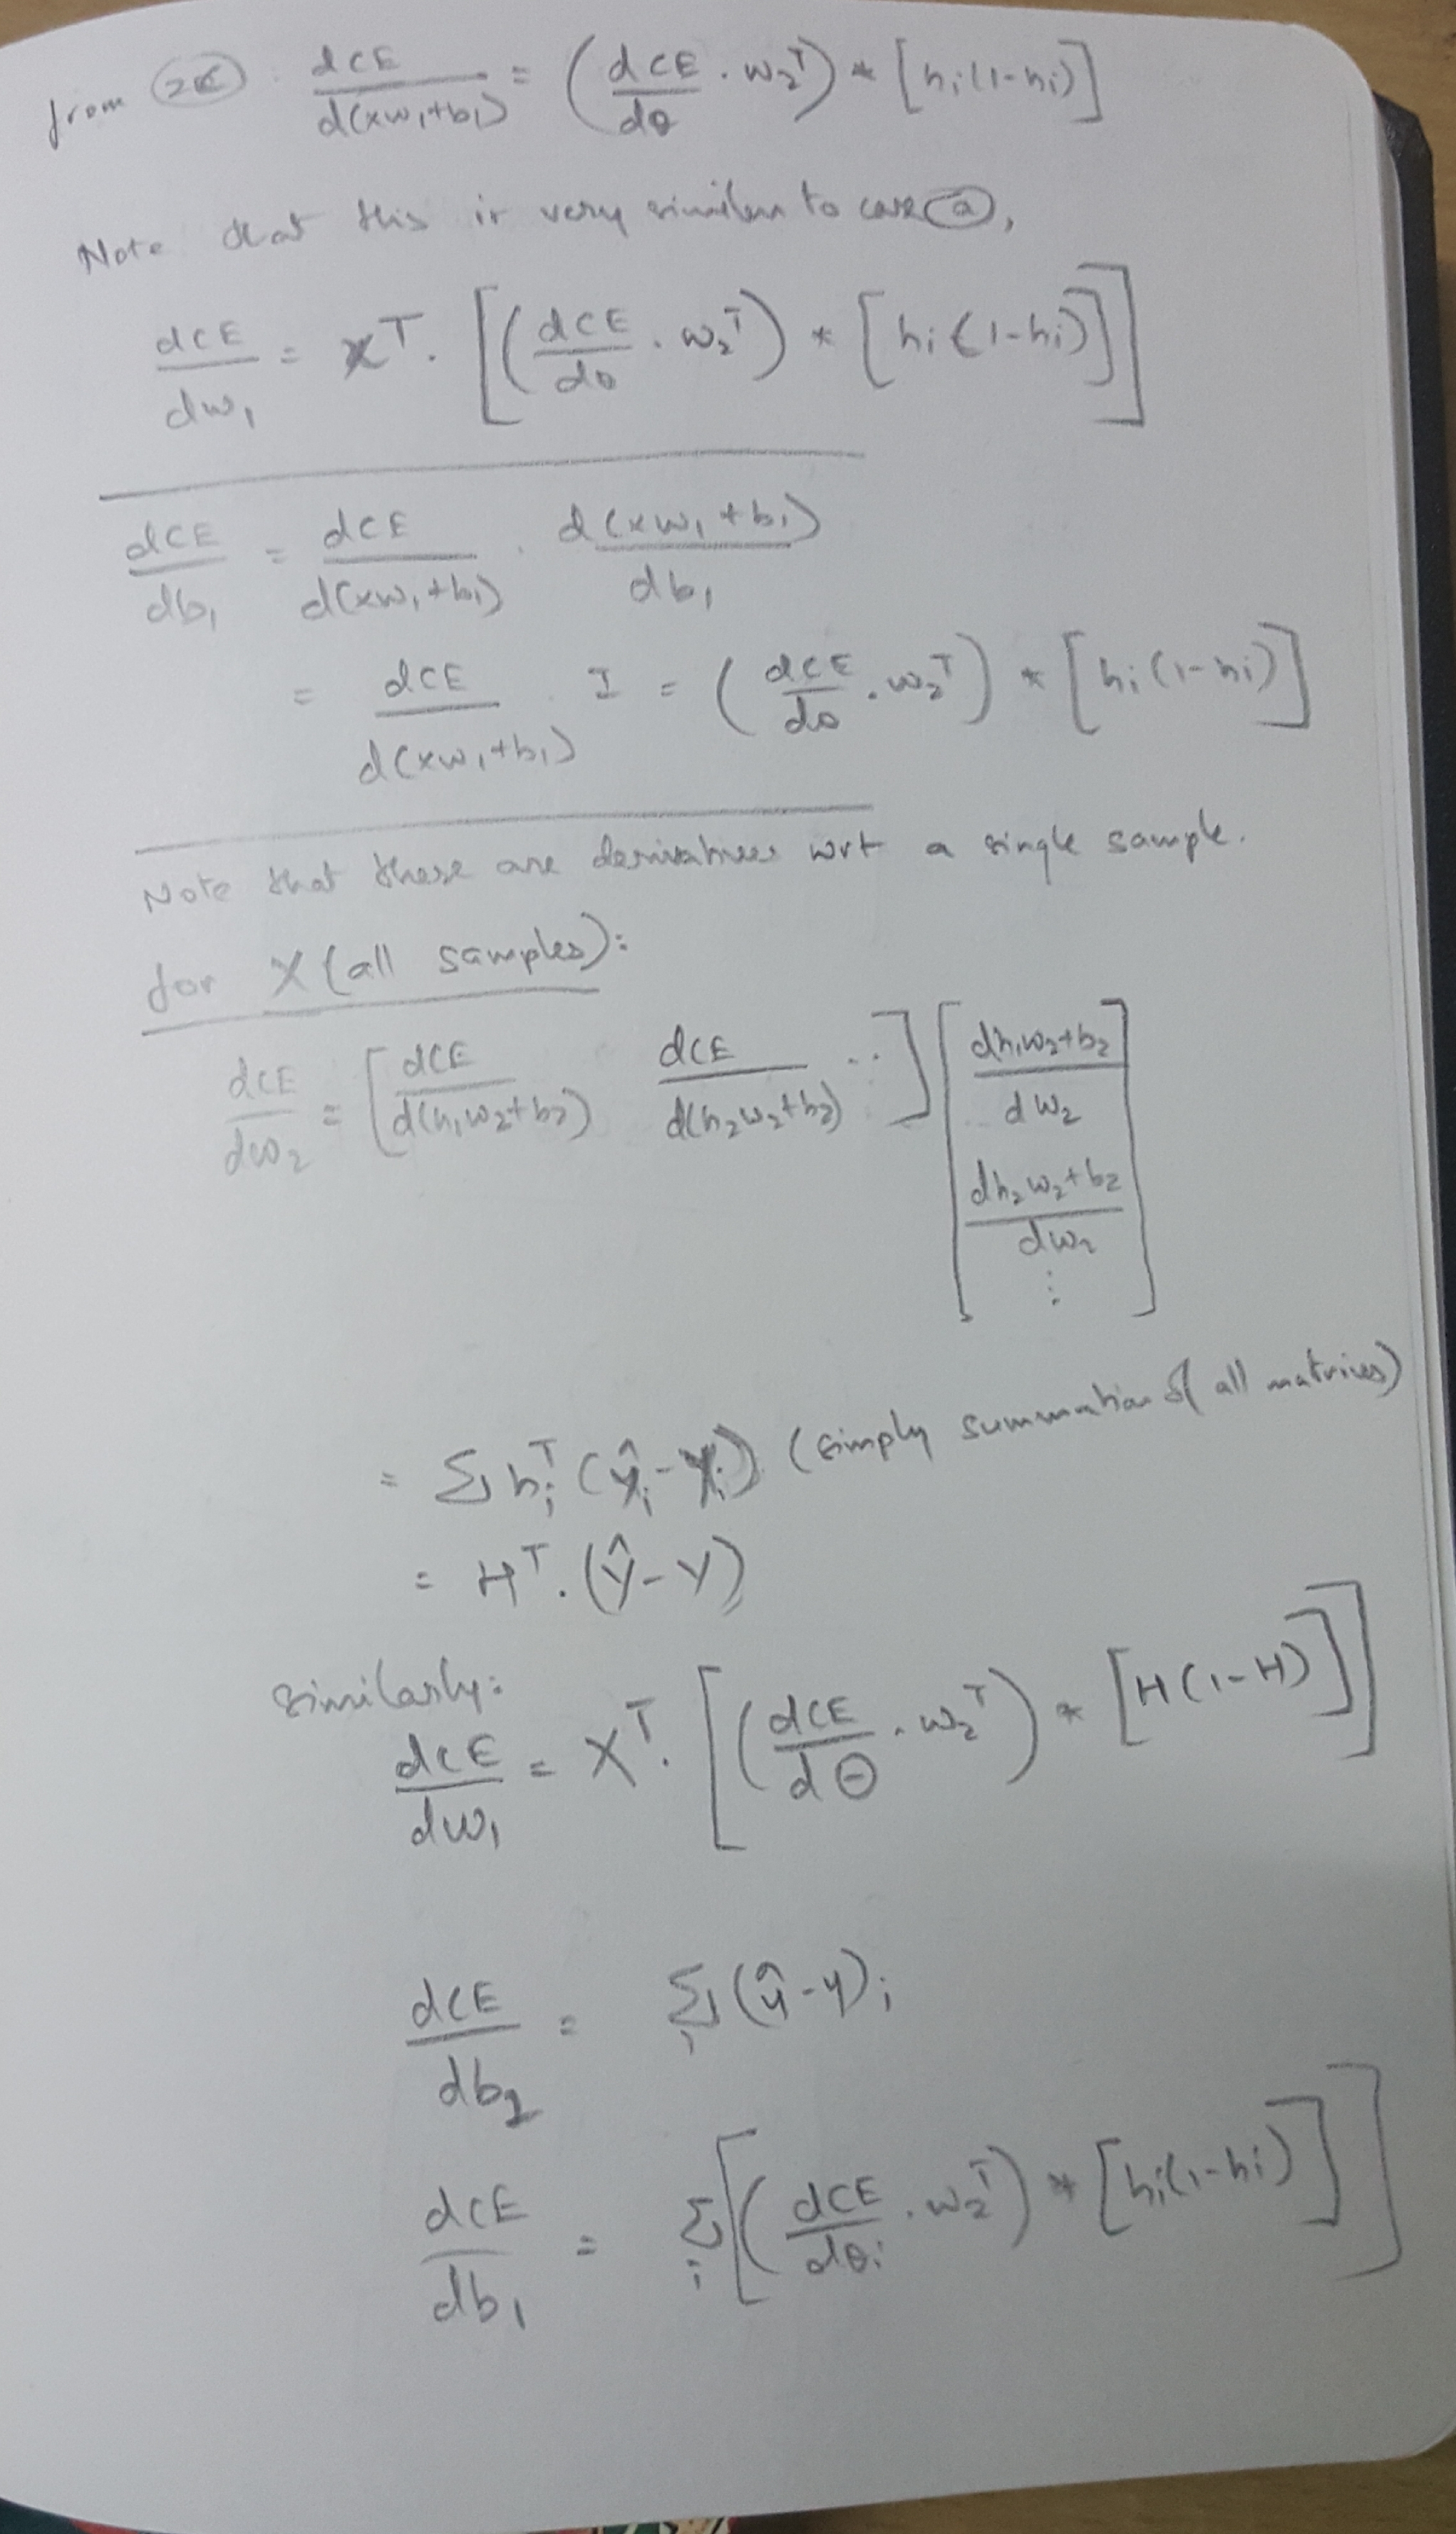 from (2c) dCE/d(xw₁+b₁) = (dCE/dθ . w₂ᵀ) * [hᵢ(1-hᵢ)]
Note that this is very similar to case (a),
dCE/dw₁ = xᵀ. [(dCE/dθ . w₂ᵀ) * [hᵢ(1-hᵢ)]]
dCE/db₁ = dCE/d(xw₁+b₁) . d(xw₁+b₁)/db₁
= dCE/d(xw₁+b₁) . I = (dCE/dθ . w₂ᵀ) * [hᵢ(1-hᵢ)]
Note that these are derivatives wrt a single sample.
for X (all samples):
dCE/dw₂ = [dCE/d(h₁w₂+b₂) dCE/d(h₂w₂+b₂) ..] [dh₁w₂+b₂/dw₂ dh₂w₂+b₂/dw₂ ⋮]
= Σ hᵢᵀ (ŷᵢ - yᵢ) (simply summation of all matrices)
= Hᵀ. (Ŷ - Y)
similarly:
dCE/dw₁ = Xᵀ. [(dCE/dΘ . w₂ᵀ) * [H(1-H)]]
dCE/db₂ = Σᵢ (ŷ - y)ᵢ
dCE/db₁ = Σᵢ [(dCE/dθᵢ . w₂ᵀ) * [hᵢ(1-hᵢ)]]